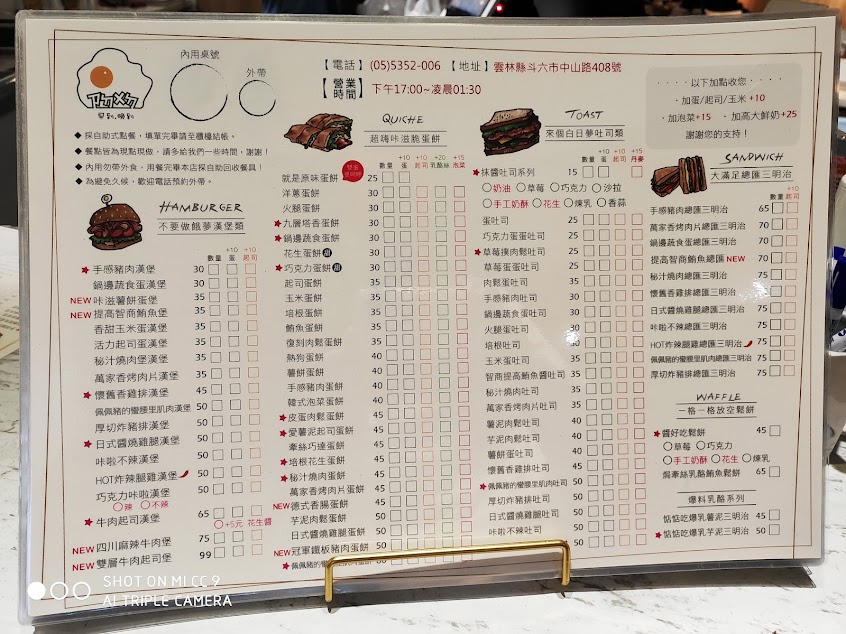 內用桌號
外帶
早到.晚到
【電話】(05)5352-006 【地址】雲林縣斗六市中山路408號
【營業時間】下午17:00~凌晨01:30
····以下加點收您····
·加蛋/起司/玉米+10
·加泡菜+15 ·加高大鮮奶+25
謝謝您的支持！
◆ 採自助式點餐，填單完畢請至櫃檯結帳。
◆ 餐點皆為現點現做，請多給我們一些時間，謝謝！
◆ 內用勿帶外食，用餐完畢本店採自助回收餐具！
◆ 為避免久候，歡迎電話預約外帶。
HAMBURGER
不要做餓夢漢堡類
數量 +10蛋 +10起司
★手感豬肉漢堡 30
鍋邊蔬食蛋漢堡 30
NEW 咔滋薯餅蛋堡 35
NEW 提高智商鮪魚堡 35
香甜玉米蛋漢堡 35
活力起司蛋漢堡 35
秘汁燒肉堡漢堡 35
萬家香烤肉片漢堡 35
★懷舊香雞排漢堡 45
佩佩豬的彎腰里肌肉漢堡 50
厚切炸豬排漢堡 50
★日式醬燒雞腿漢堡 50
咔啦不辣漢堡 50
HOT炸辣腿雞漢堡 50
巧克力咔啦漢堡 50
○辣 ○不辣
★牛肉起司漢堡 65
○+5元 花生醬
NEW 四川麻辣牛肉堡 75
NEW 雙層牛肉起司堡 99
QUICHE
超嗨咔滋脆蛋餅
數量 +10蛋 +10起司 +20乳酪絲 +15泡菜
就是原味蛋餅 25
洋蔥蛋餅 30
火腿蛋餅 30
★九層塔香蛋餅 30
★鍋邊蔬食蛋餅 30
花生蛋餅 甜 30
★巧克力蛋餅 甜 30
起司蛋餅 35
玉米蛋餅 35
培根蛋餅 35
鮪魚蛋餅 35
復刻肉鬆蛋餅 35
熱狗蛋餅 40
薯餅蛋餅 40
手感豬肉蛋餅 40
韓式泡菜蛋餅 40
★皮蛋肉鬆蛋餅 45
★愛薯泥起司蛋餅 45
牽絲巧達蛋餅 45
★培根花生蛋餅 45
★秘汁燒肉蛋餅 45
萬家香烤肉片蛋餅 45
NEW 德式香腸蛋餅 50
芋泥肉鬆蛋餅 50
日式醬燒雞腿蛋餅 50
NEW 冠軍鐵板豬肉蛋餅 50
TOAST
來個白日夢吐司類
數量 +10蛋 +10起司 +15丹麥
★抹醬吐司系列 15
○奶油 ○草莓 ○巧克力 ○沙拉
○手工奶酥 ○花生 ○煉乳 ○香蒜
蛋吐司 25
巧克力蛋蛋吐司 25
★草莓撲肉鬆吐司 25
草莓蛋蛋吐司 25
肉鬆蛋吐司 30
手感豬肉吐司 30
鍋邊蔬食蛋吐司 30
火腿蛋吐司 30
培根吐司 30
玉米蛋吐司 35
智商提高鮪魚醬吐司 35
秘汁燒肉吐司 35
萬家香烤肉片吐司 35
薯泥肉鬆吐司 40
芋泥肉鬆吐司 40
薯餅蛋吐司 40
懷舊香雞排吐司 45
★佩佩豬的彎腰里肌肉吐司 50
厚切炸豬排吐司 50
日式醬燒雞腿吐司 50
咔啦不辣吐司 50
SANDWICH
大滿足總匯三明治
+10起司
手感豬肉總匯三明治 65
萬家香烤肉片總匯三明治 70
鍋邊蔬食總匯三明治 70
提高智商鮪魚總匯 NEW 70
秘汁燒肉總匯三明治 70
懷舊香雞排總匯三明治 75
日式醬燒雞腿總匯三明治 75
咔啦不辣總匯三明治 75
HOT炸辣腿雞總匯三明治 75
佩佩豬的彎腰里肌肉總匯三明治 75
厚切炸豬排總匯三明治 75
WAFFLE
一格一格放空鬆餅
★醬好吃鬆餅 45
○草莓 ○巧克力
○手工奶酥 ○花生 ○煉乳
焗牽絲乳酪鮪魚鬆餅 65
爆料乳酪系列
惦惦吃爆乳薯泥三明治 50
★惦惦吃爆乳芋泥三明治 50
SHOT ON MI CC 9
AI TRIPLE CAMERA